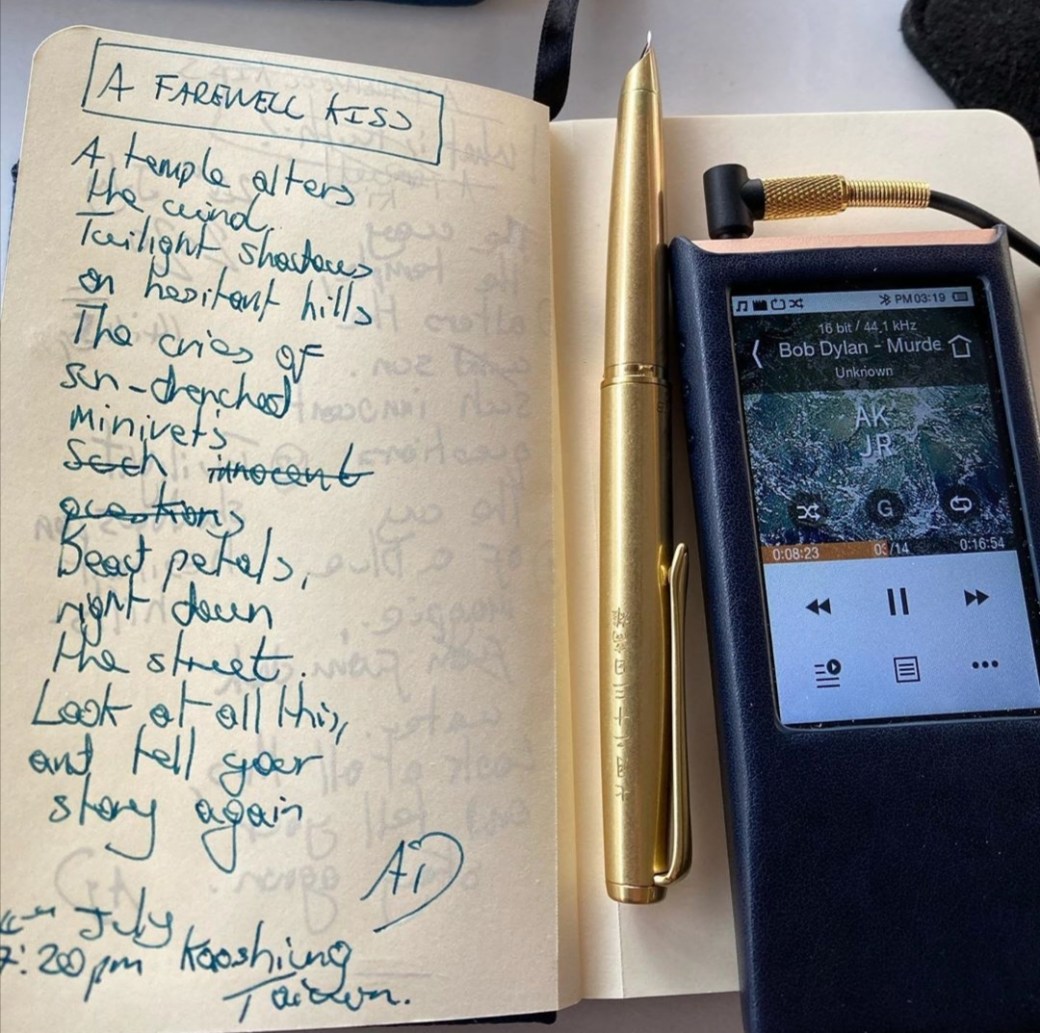 A FAREWELL KISS
A temple alters
the wind.
Twilight shadows
on hesitant hills
The cries of
sun-drenched
Minivets
Such innocent
questions
Dead petals,
right down
the street.
Look at all this,
and tell your
story again
Ai
July
7:200pm Kaoshiung
Taiwan.
PM 03:19
16 bit / 44.1 kHz
Bob Dylan - Murde
Unknown
AK
JR
G
0:08:23 03/14 0:16:54